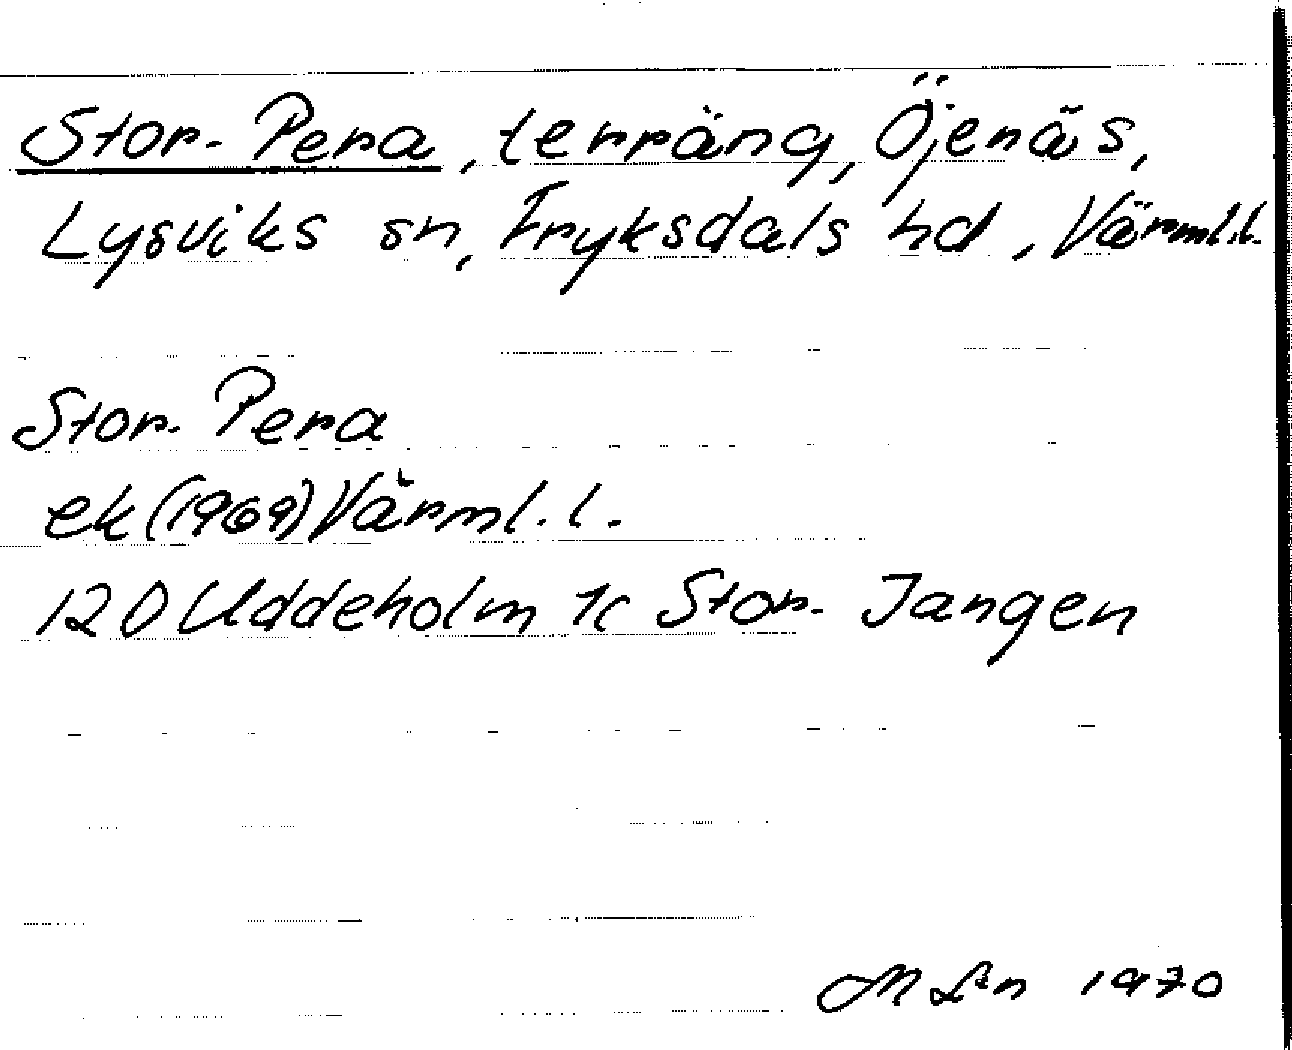 Stor-Pera, terräng, Öjenäs,
Lysviks sn, Fryksdals hd, Värml.l.
Stor-Pera
ek (1969) Värml.l.
12D Uddeholm 1c Stor-Jangen
1970